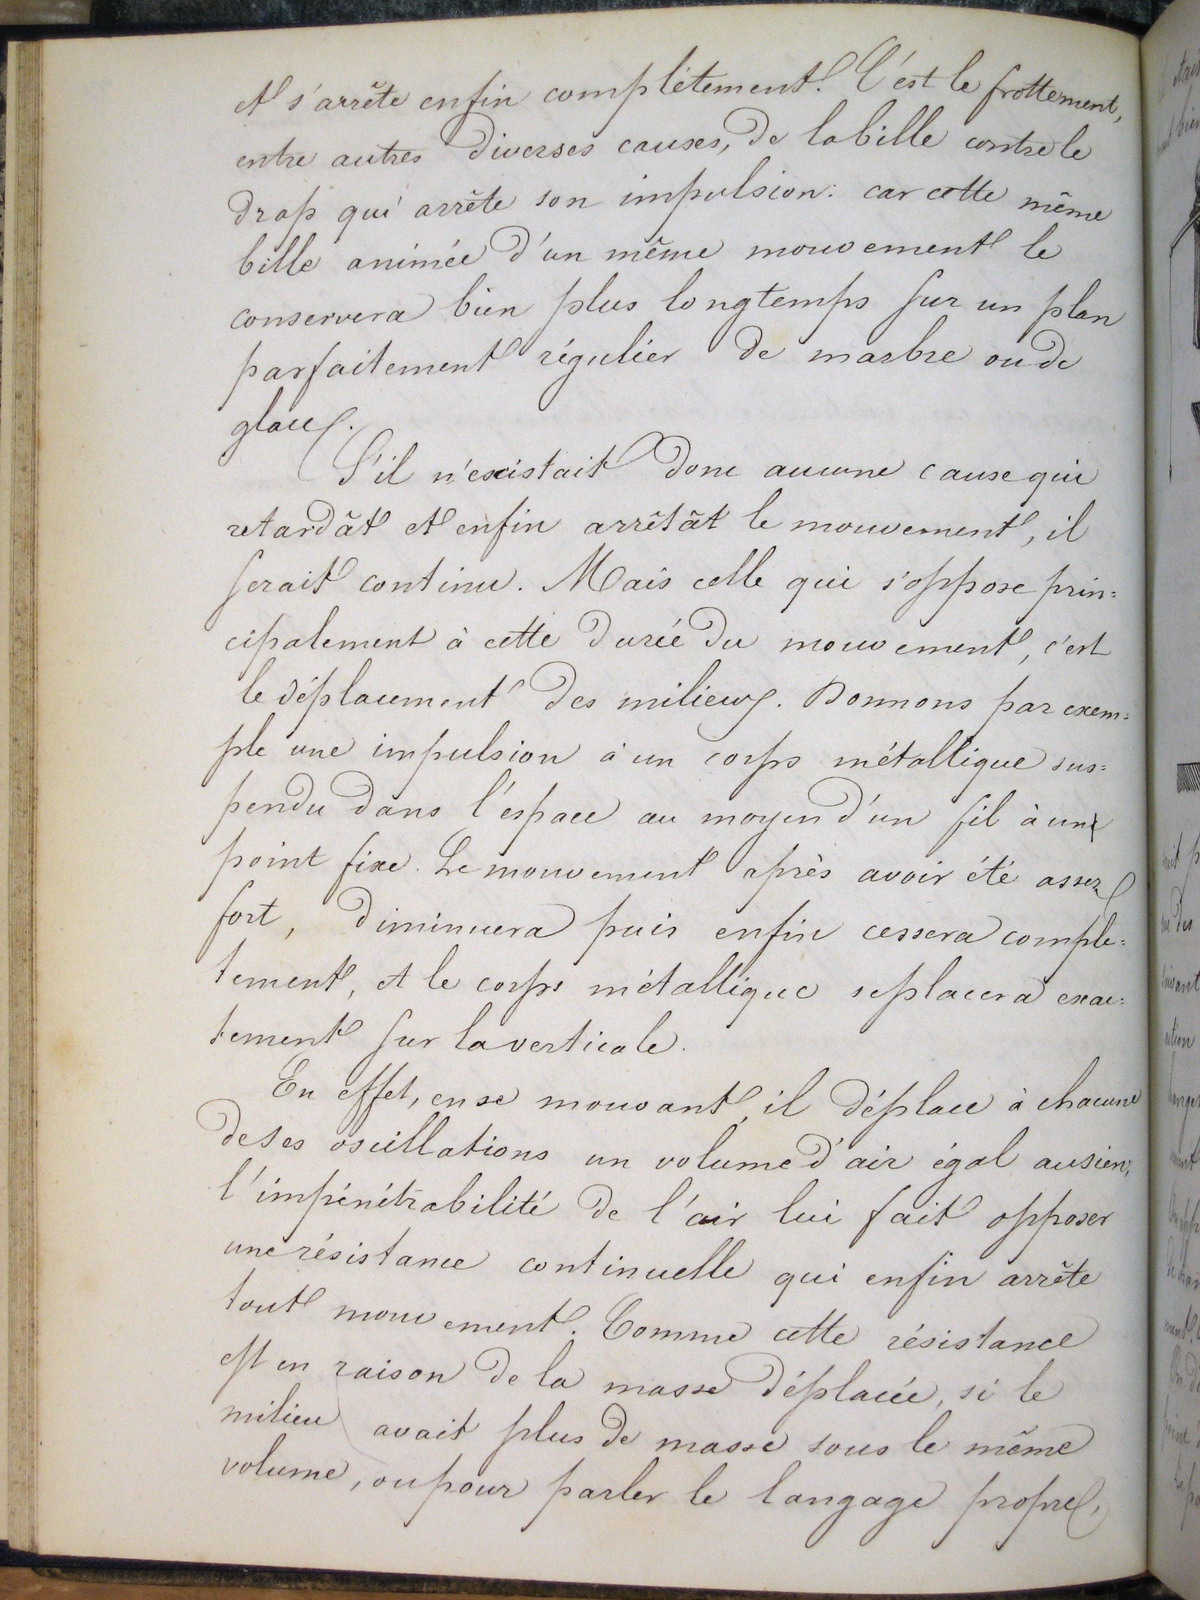 et s'arrête enfin complétement. C'est le frottement,
entre autres diverses causes, de la bille contre le
drap qui arrête son impulsion: car cette même
bille animée d'un même mouvement le
conservera bien plus longtemps sur un plan
parfaitement régulier de marbre ou de
glace.
S'il n'existait donc aucune cause qui
retardât et enfin arrêtât le mouvement, il
serait continu. Mais celle qui s'oppose prin=
cipalement à cette durée du mouvement, c'est
le déplacement des milieux. Donnons par exem=
ple une impulsion à un corps métallique sus=
pendu dans l'espace au moyen d'un fil à un
point fixe. Le mouvement après avoir été assez
fort, diminuera puis enfin cessera complè=
tement, et le corps métallique se placera exac=
tement sur la verticale.
En effet, en se mouvant, il déplace à chacune
de ses oscillations un volume d'air égal au sien;
l'impénétrabilité de l'air lui fait opposer
une résistance continuelle qui enfin arrête
tout mouvement. Comme cette résistance
est en raison de la masse déplacée, si le
milieu avait plus de masse sous le même
volume, ou pour parler le langage propre,